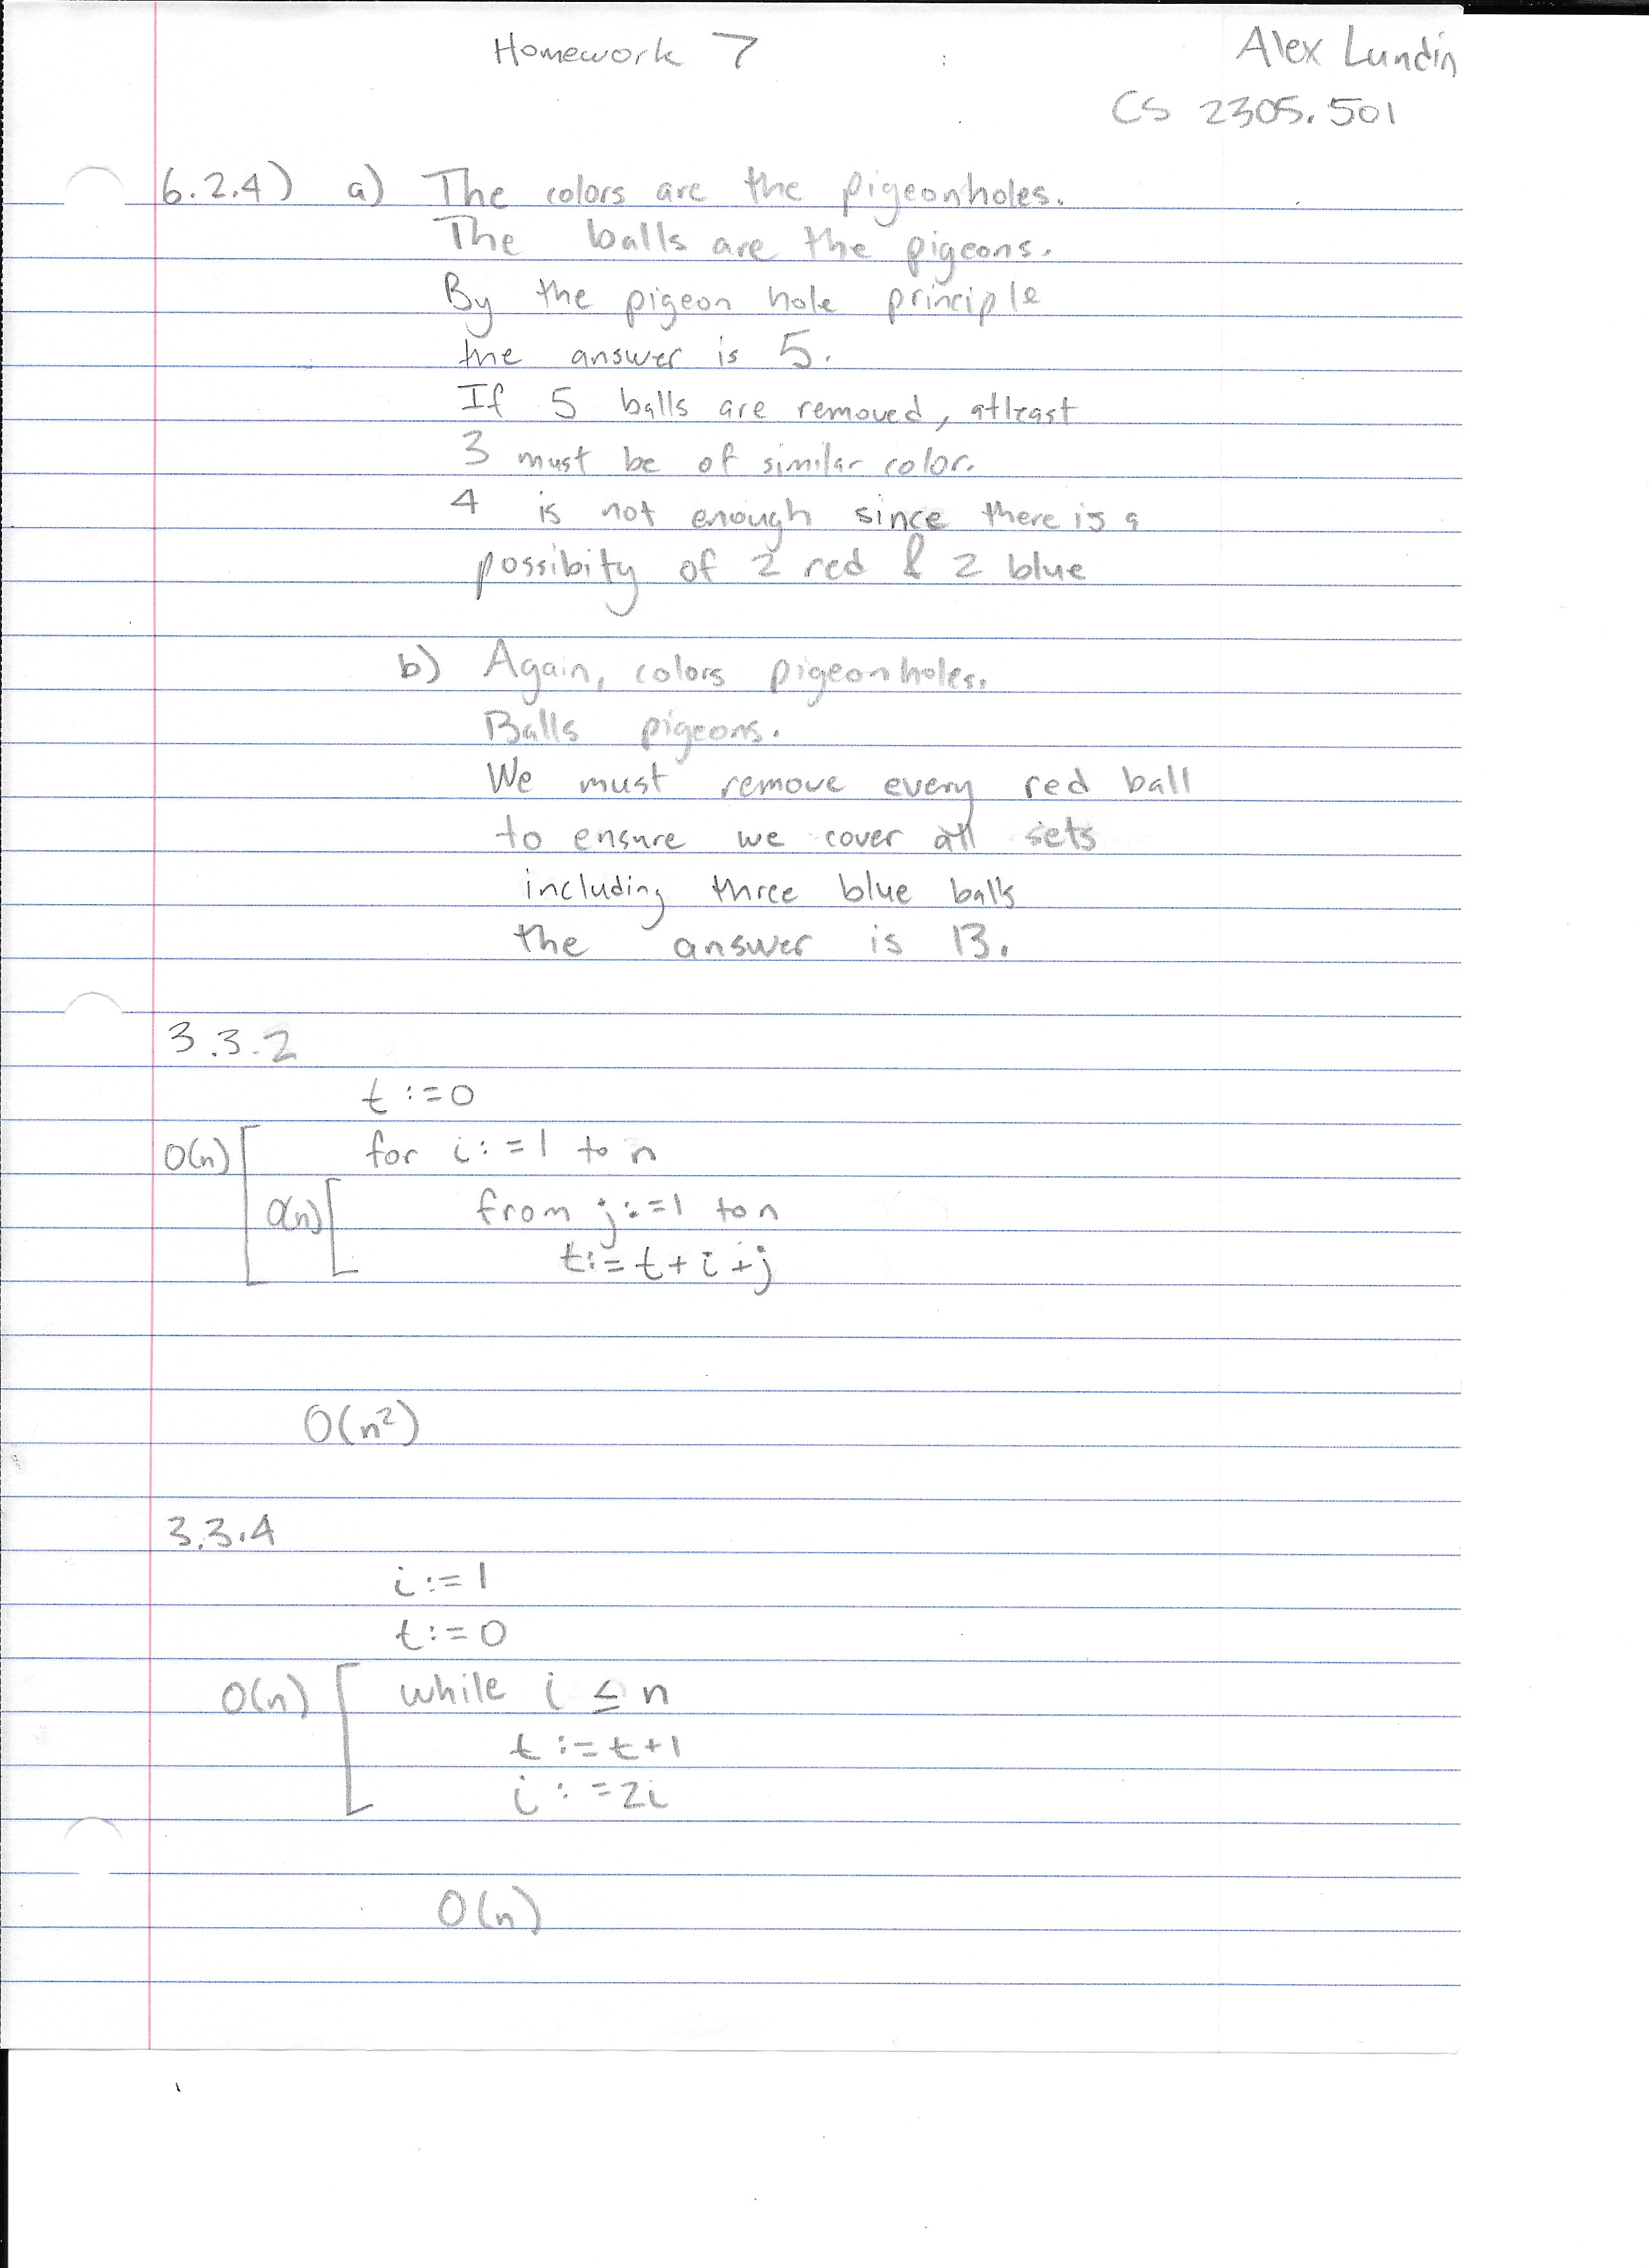 Homework 7
Alex Lundin
CS 2305.501
6.2.4) a) The colors are the pigeonholes.
The balls are the pigeons.
By the pigeon hole principle
the answer is 5.
If 5 balls are removed, atleast
3 must be of similar color.
4 is not enough since there is a
possibity of 2 red & 2 blue
b) Again, colors pigeonholes.
Balls pigeons.
We must remove every red ball
to ensure we cover all sets
including three blue balls
the answer is 13.
3.3.2
t:=0
O(n) for i:=1 to n
O(n) from j:=1 to n
t:=t+i+j
O(n²)
3.3.4
i:=1
t:=0
O(n) while i ≤ n
t:=t+1
i:=2i
O(n)